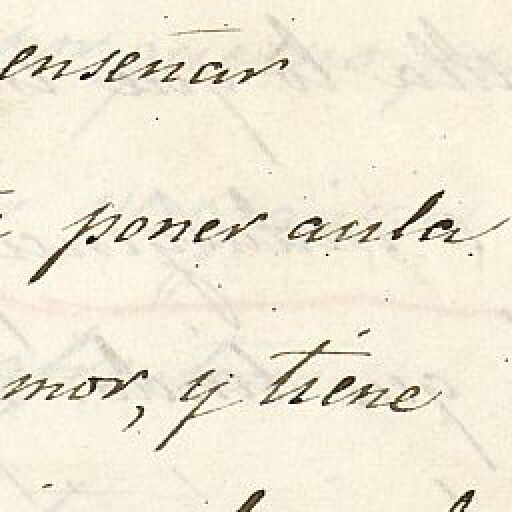 enseñar
poner aula
mor, y tiene